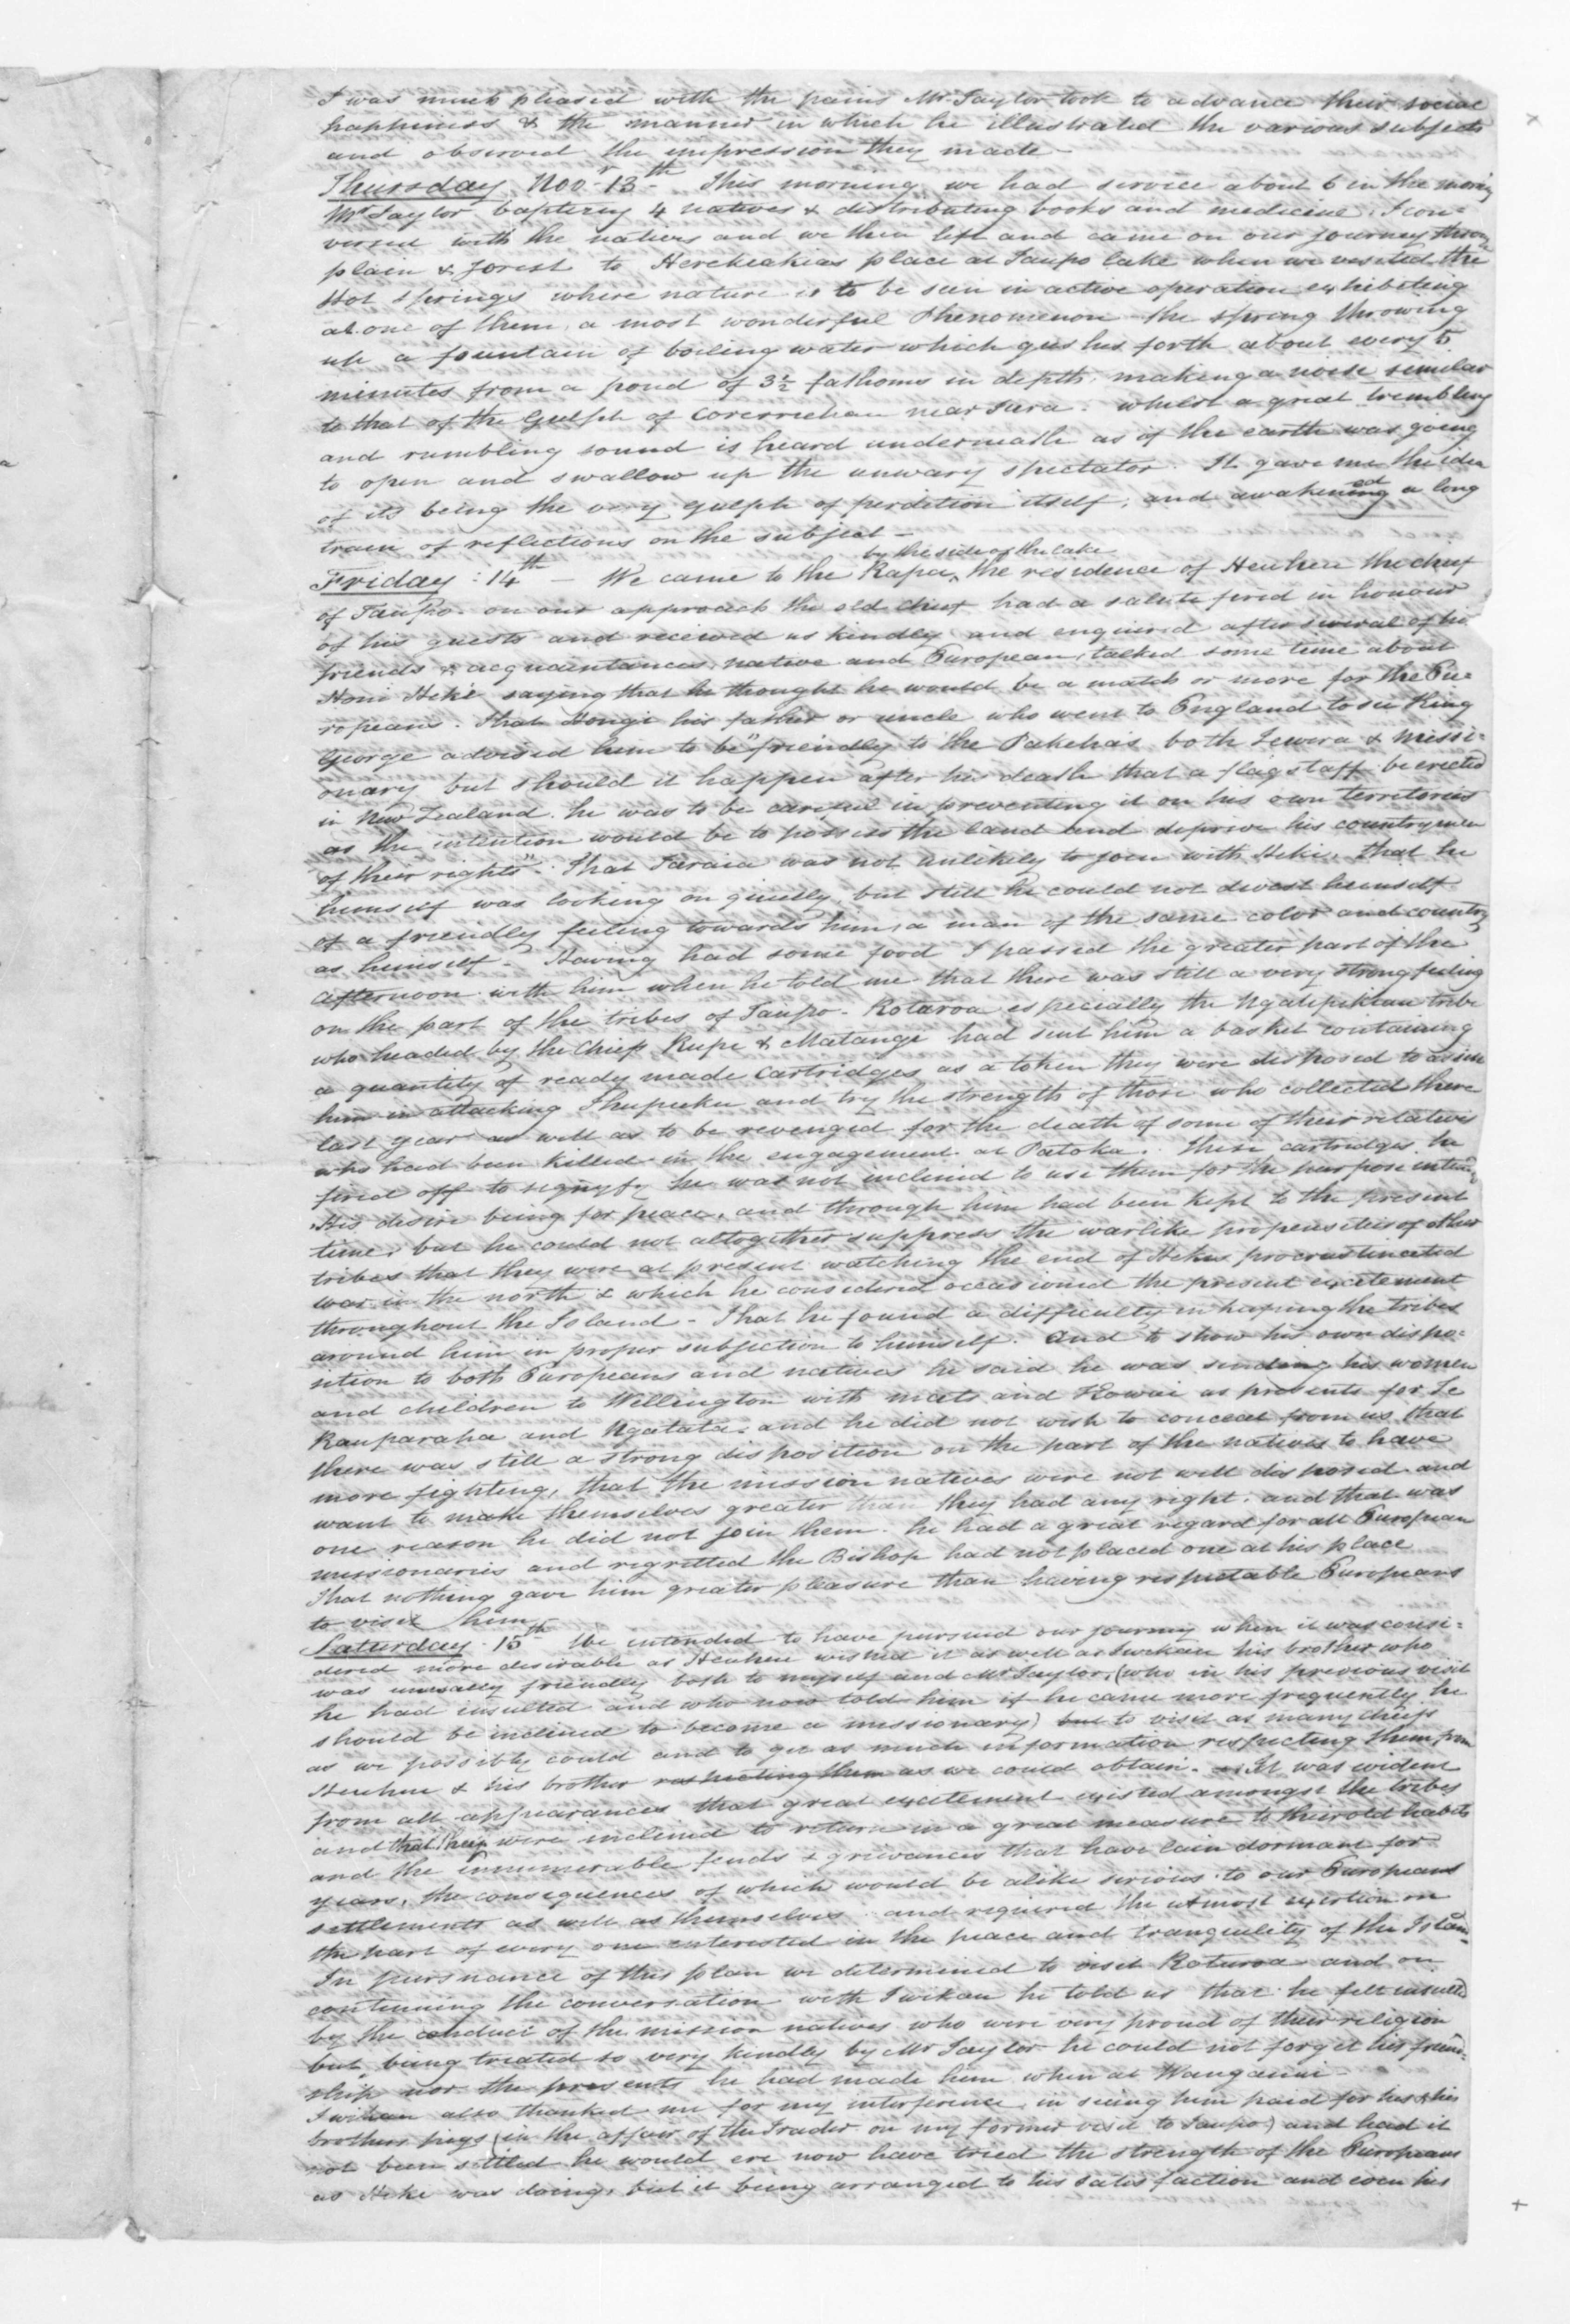 I was much pleased with the pains Mr Taylor took to advance their social
happiness & the manner in which he illustrated the various subjects
and observed the impression they made -
Thursday Novr 13th This morning we had service about 6 in the morning
Mr Taylor baptizing 4 natives & distributing books and medicine. I con=
versed with the natives and we then left and came on our journey through
plain & forest to Herekeakias place at Taupo lake when we visited the
Hot springs where nature is to be seen in active operation exhibiting
at one of them, a most wonderful Phenomenon - the spring throwing
up a fountain of boiling water which gushes forth about every 5
minutes from a pond of 3½ fathoms in depth, making a noise similar
to that of the Gulph of near Jura. whilst a great trembling
and rumbling sound is heard underneath as if the earth was going
to open and swallow up the unwary spectator. It gave me the idea
of its being the very gulph of perdition itself, and awakened a long
train of reflections on the subject -
Friday : 14th - We came to the Rapa, by the side of the lake the residence of Heuheu the chief
of Taupo. on our approach the old chief had a salute fired in honour
of his guests and received us kindly and enquired after several of his
friends & acquaintances, native and European, talked some time about
Honi Heke saying that he thought he would be a match or more for the Eu=
ropeans. That Hongi his father or uncle who went to England to see King
George advised him to be "friendly to the Pakeha's both Tewera & missi=
onary but should it happen after his death that a flagstaff be erected
in New Zealand. he was to be careful in preventing it on his own territories
as the intention would be to possess the land and deprive his countrymen
of their rights". That Taraia was not unlikely to join with Heki, that he
himself was looking on quietly, but still he could not divest himself
of a friendly feeling towards him, a man of the same color and country
as himself - Having had some food I passed the greater part of the
afternoon with him when he told me that there was still a very strong feeling
on the part of the tribes of Taupo - Rotaroa especially the Ngatipikiau tribe
who headed by the Chiefs Rupe & Matangi had sent him a basket containing
a quantity of ready made cartridges as a token they were disposed to assist
him in attacking Ihupuku and try the strength of those who collected there
last year as well as to be revenged for the death of some of their relatives
who had been killed in the engagement at Patoka. These cartridges he
fired off to signify he was not inclined to use them for the purpose intended
His desire being for peace, and through him had been kept to the present
time, but he could not altogether suppress the warlike propensities of other
tribes that they were at present watching the end of Hekes procrastinated
war in the north & which he considered occasioned the present excitement
throughout the Island - That he found a difficulty in keeping the tribes
around him in proper subjection to himself. And to show his own dispo=
sition to both Europeans and natives he said he was sending his women
and children to Wellington with mats and Kowai as presents for Te
Rauparaha and Ngatata. and he did not wish to conceal from us that
there was still a strong disposition on the part of the natives to have
more fighting, that the mission natives were not well disposed and
want to make themselves greater than they had any right. and that was
one reason he did not join them. he had a great regard for all European
missionaries and regretted the Bishop had not placed one at his place
That nothing gave him greater pleasure than having respectable Europeans
to visit him -
Saturday 15th We intended to have pursued our journey when it was consi=
dered more desirable as Heuheu wished it as well as Iwikau his brother who
was unusually friendly both to myself and Mr Taylor, (who in his previous visit
he had insulted and who now told him if he came more frequently he
should be inclined to become a missionary) but to visit as many chiefs
as we possibly could and to get as much information respecting them from
Heuheu & his brother respecting them as we could obtain. It was evident
from all appearances that great excitement existed amongst the tribes
and that they were inclined to return in a great measure to their old habits
and the innumerable feuds & grievances that have lain dormant for
years, the consequences of which would be alike serious to our Europeans
settlements as well as themselves and required the utmost exertion on
the part of every one interested in the peace and tranquility of the Island.
In pursuance of this plan we determined to visit Roturoa and on
continuing the conversation with Iwikau he told us that he felt insulted
by the conduct of the mission natives who were very proud of their religion
but being treated so very kindly by Mr Taylor he could not forget his friend=
ship nor the presents he had made him when at Wanganui -
Iwikau also thanked me for my interference in seeing him paid for his & his
brothers pigs (in the affair of the Trader on my former visit to Taupo) and had it
not been settled he would ere now have tried the strength of the Europeans
as Heke was doing, but it being arranged to his satisfaction and even his